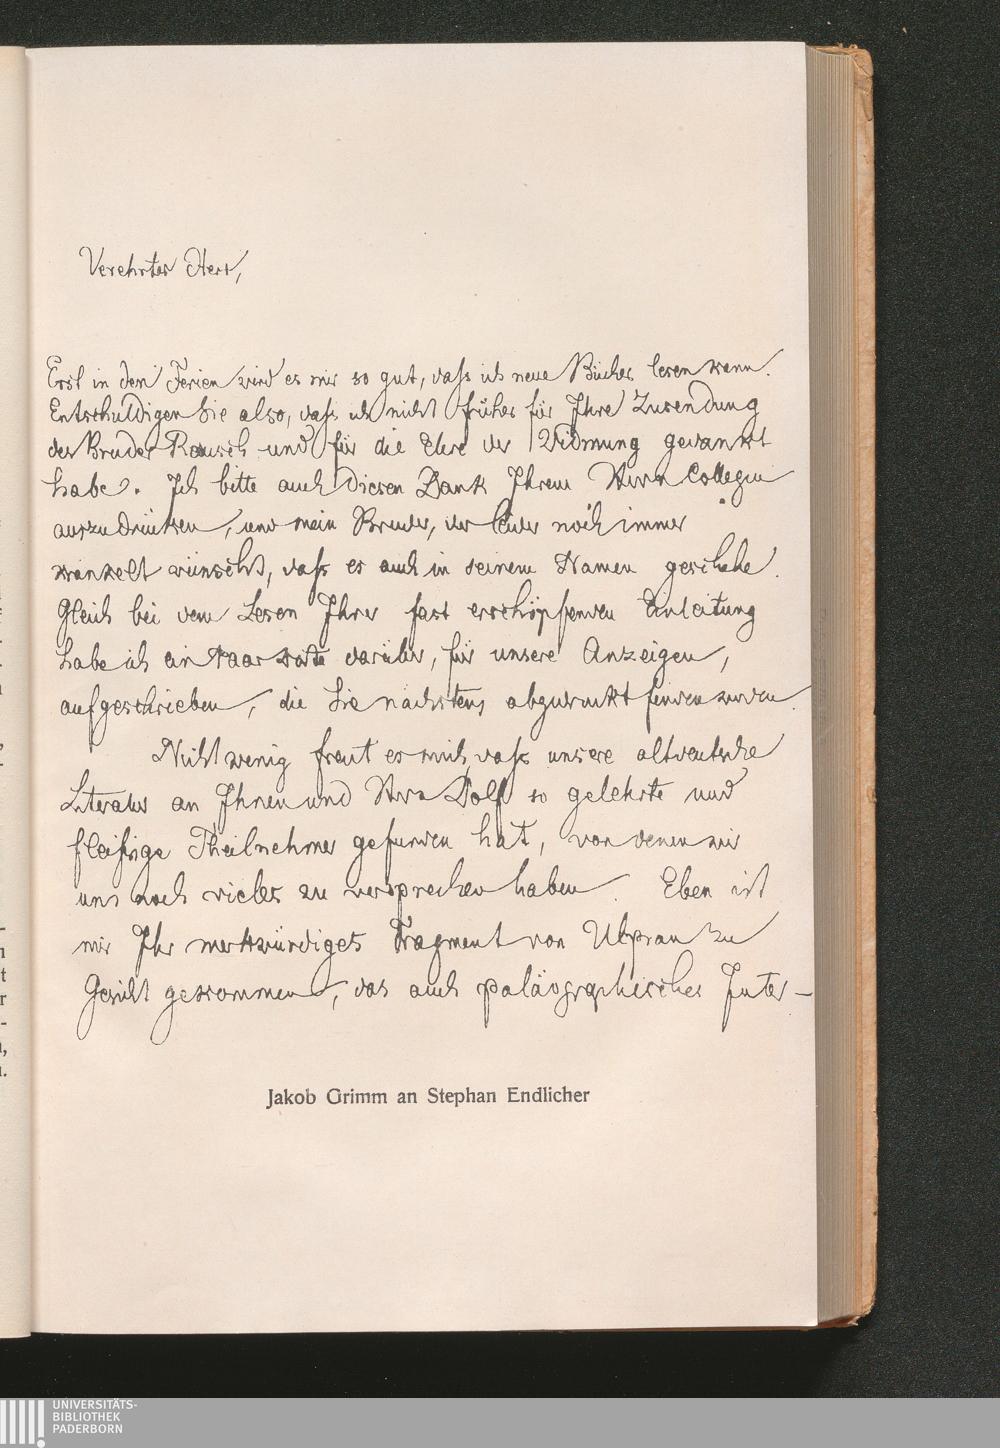 Verehrter Herr,
Erst in den Ferien wird es mir so gut, daſs ich neue Bücher lesen kann.
Entschuldigen Sie also, daſs ich nicht früher für Ihre Zusendung
des Bruder Rausch und für die Ehre der Widmung gedankt
habe. Ich bitte auch diesen Dank Ihrem Herrn Collegen
auszudrücken, und mein Bruder, der leider noch immer
krankelt wünscht, daſs es auch in seinem Namen geschehe.
Gleich bei dem Lesen Ihrer fast erschöpfenden Einleitung
habe ich ein paar Worte darüber, für unsere Anzeigen,
aufgeschrieben, die Sie nächstens abgedruckt finden werden.
Nicht wenig freut es mich, daſs unsere altdeutsche
Literatur an Ihnen und Herrn Wolf so gelehrte und
fleiſsige Theilnehmer gefunden hat, von denen wir
uns noch vieles zu versprechen haben. Eben ist
mir Ihr merkwürdiges Fragment von Ulpian zu
Gesicht gekommen, das auch paläographisches Inter-
Jakob Grimm an Stephan Endlicher
UNIVERSITÄTS-
BIBLIOTHEK
PADERBORN